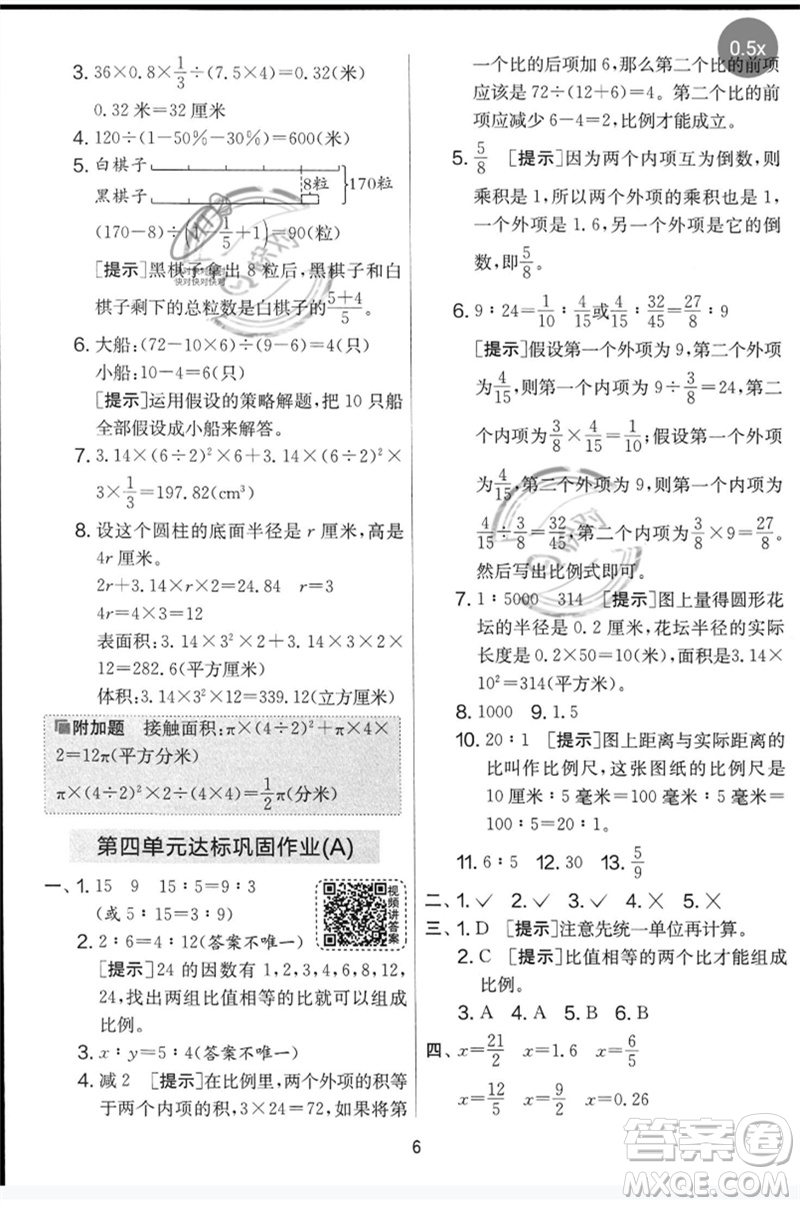 3. 36×0.8×1/3÷(7.5×4)=0.32(米)
0.32 米=32 厘米
4. 120÷(1-50%-30%)=600(米)
5. 白棋子
黑棋子
8粒
170粒
(170-8)÷(1 1/5+1)=90(粒)
[提示]黑棋子拿出 8 粒后,黑棋子和白
棋子剩下的总粒数是白棋子的(5+4)/5。
6. 大船:(72-10×6)÷(9-6)=4(只)
小船:10-4=6(只)
[提示]运用假设的策略解题,把 10 只船
全部假设成小船来解答。
7. 3.14×(6÷2)²×6+3.14×(6÷2)²×
3×1/3=197.82(cm³)
8. 设这个圆柱的底面半径是 r 厘米,高是
4r 厘米。
2r+3.14×r×2=3.14×12
4r=4×3=12
表面积:3.14×3²×2+3.14×3×2×
12=282.6(平方厘米)
体积:3.14×3²×12=339.12(立方厘米)
附加题 接触面积:π×(4÷2)²+π×4×
2=12π(平方分米)
π×(4÷2)²×2÷(4×4)=1/2π(分米)
第四单元达标巩固作业(A)
一、1. 15 9 15∶5=9∶3
(或 5∶15=3∶9)
2. 2∶6=4∶12(答案不唯一)
[提示]24 的因数有 1,2,3,4,6,8,12,
24,找出两组比值相等的比就可以组成
比例。
视频讲答案
3. x∶y=5∶4(答案不唯一)
4. 减 2 [提示]在比例里,两个外项的积等
于两个内项的积,3×24=72,如果将第
一个比的后项加 6,那么第二个比的前项
应该是 72÷(12+6)=4。第二个比的前
项应减少 6-4=2,比例才能成立。
0.5x
5. 5/8 [提示]因为两个内项互为倒数,则
乘积是 1,所以两个外项的乘积也是 1,
一个外项是 1.6,另一个外项是它的倒
数,即5/8。
6. 9∶24=1/10∶4/15或4/15∶32/45=27/8∶9
[提示]假设第一个外项为 9,第二个外项
为4/15,则第一个内项为 9÷3/8=24,第二
个内项为3/8×4/15=1/10;假设第一个外项
为4/15,第二个外项为 9,则第一个内项为
4/15÷3/8=32/45,第二个内项为3/8×9=27/8。
然后写出比例式即可。
7. 1∶5000 314 [提示]图上量得圆形花
坛的半径是 0.2 厘米,花坛半径的实际
长度是 0.2×50=10(米),面积是3.14×
10²=314(平方米)。
8. 1000 9. 1.5
10. 20∶1 [提示]图上距离与实际距离的
比叫作比例尺,这张图纸的比例尺是
10 厘米∶5 毫米=100 毫米∶5 毫米=
20∶1。
11. 6∶5 12. 60 13. 5/9
二、1. ✓ 2. ✓ 3. ✓ 4. ✕ 5. ✕
三、1. D [提示]注意先统一单位再计算。
2. C [提示]比值相等的两个比才能组成
比例。
3. A 4. A 5. B 6. B
四、x=21/2 x=1.6 x=6/5
x=12/5 x=9/2 x=0.26
6
答案卷
MXQE.COM